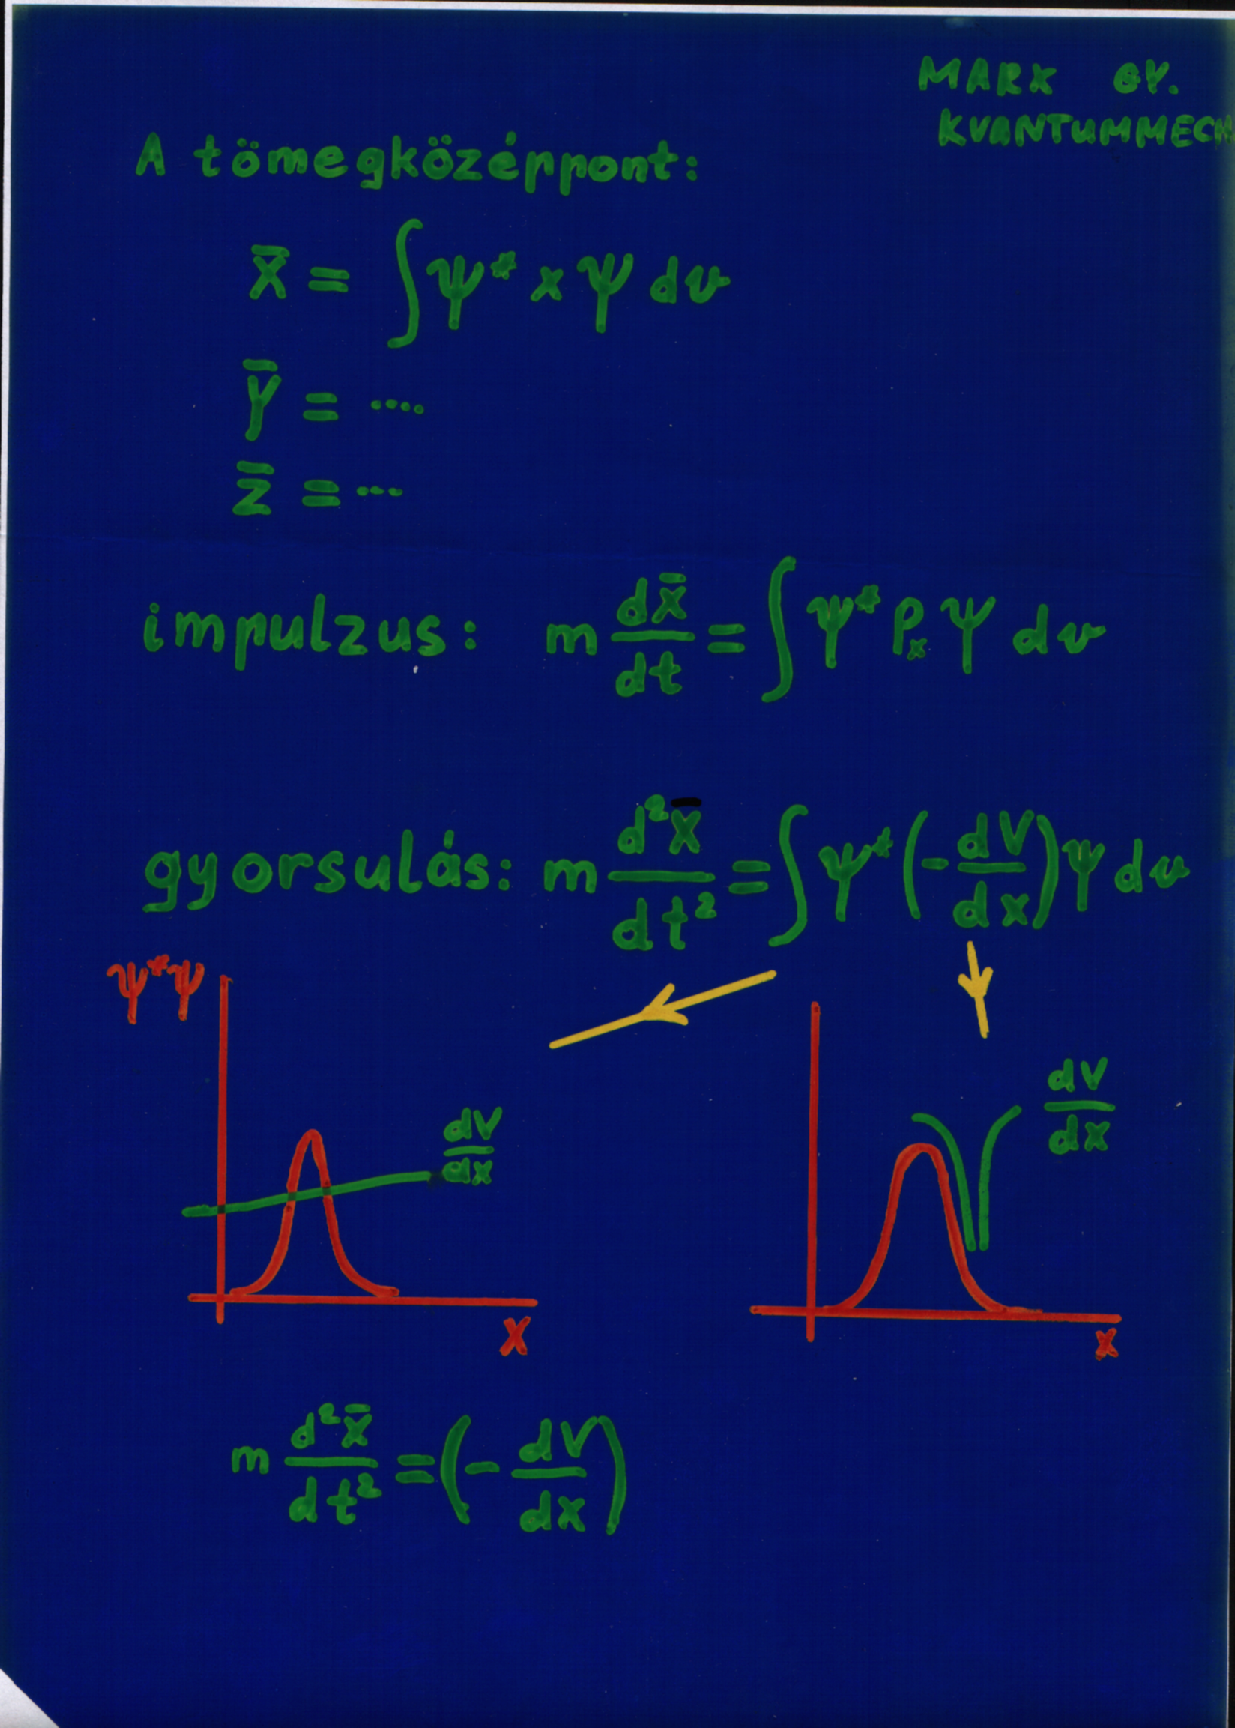 MARX GY.
KVANTUMMECH
A tömegközéppont:
x̄ = ∫ψ* x ψ dv
ȳ = ....
z̄ = ...
impulzus: m dx̄/dt = ∫ψ* Pₓ ψ dv
gyorsulás: m d²x̄/dt² = ∫ψ* (- dV/dx) ψ dv
ψ*ψ
dV/dx
x
dV/dx
x
m d²x̄/dt² = (- dV/dx)